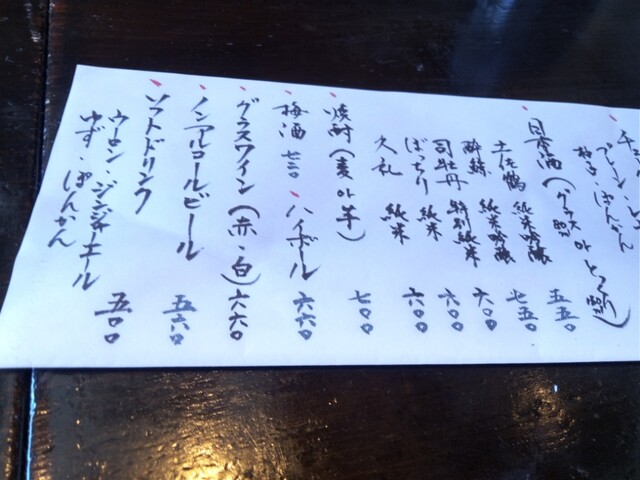 プレーン・
ゆず・ぽんかん
日本酒(グラス or とっくり)
五五〇
土佐鶴 純米吟醸 七五〇
酔鯨 純米吟醸 六〇〇
司牡丹 特別純米 六〇〇
ばっちり 純米 六〇〇
久礼 純米
焼酎(麦 or 芋) 七〇〇
梅酒 七三〇
ハイボール 六六〇
グラスワイン(赤・白) 六六〇
ノンアルコールビール 五六〇
ソフトドリンク
ウーロン・ジンジャーエール 五〇〇
ゆず・ぽんかん